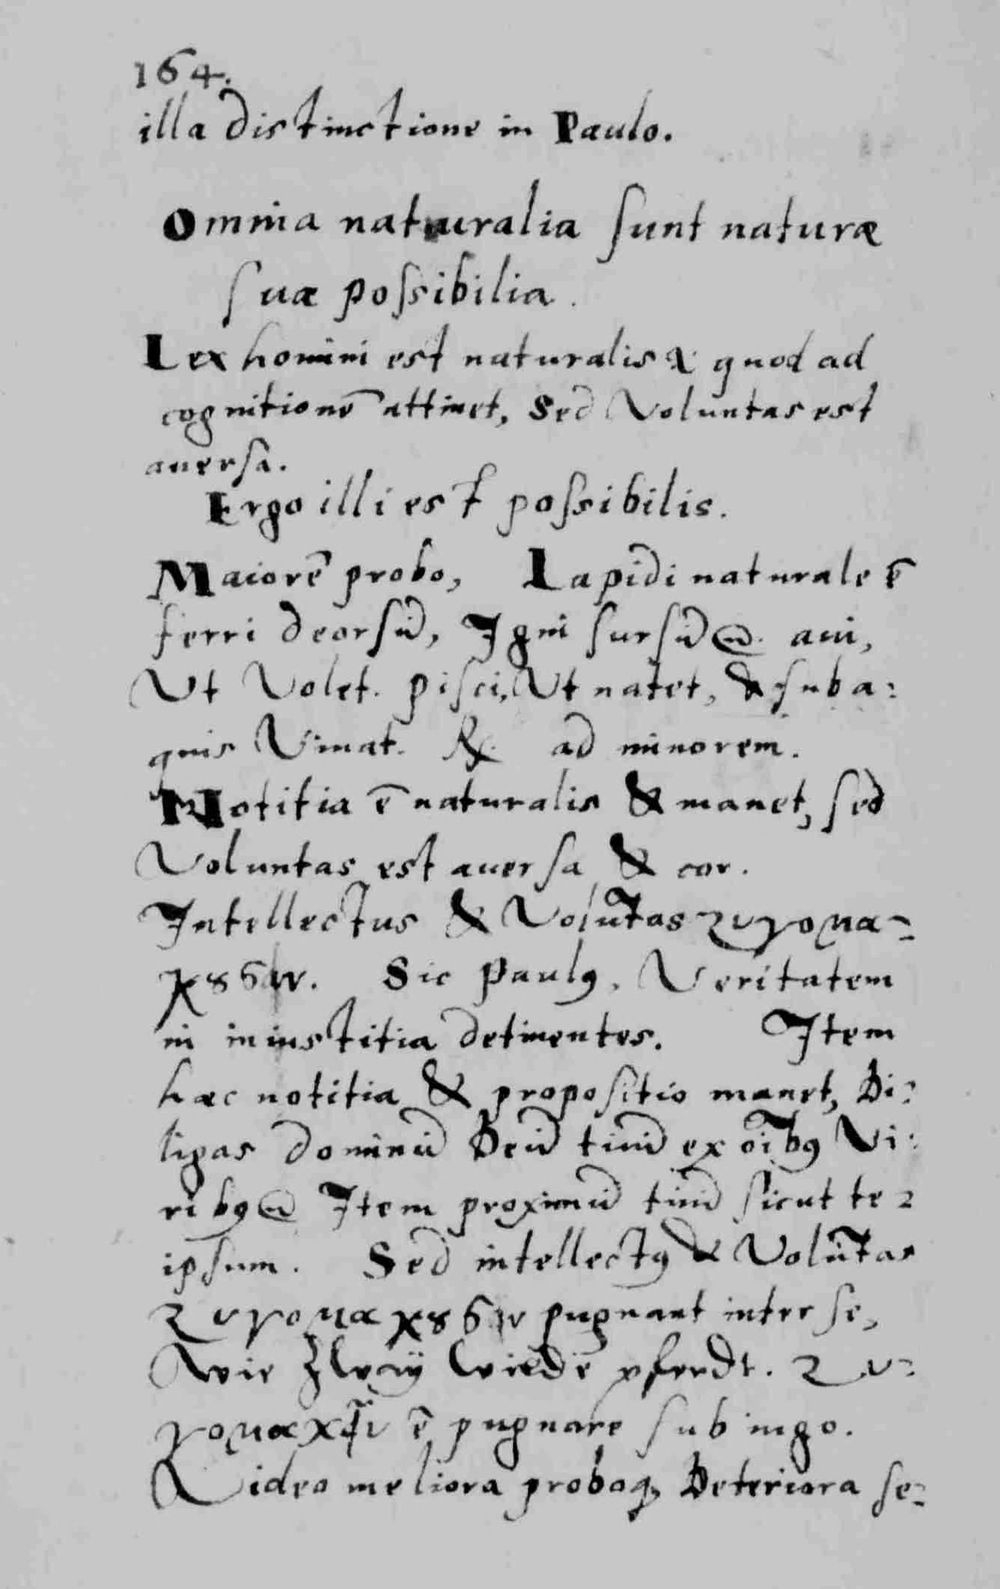 164.
illa distinctione in Paulo.
Omnia naturalia sunt naturæ
suæ possibilia.
Lex homini est naturalis quod ad
cognitionē attinet, Sed Voluntas est
auersa.
Ergo illi est possibilis.
Maiorē probo, Lapidi naturale ē
ferri deorsū, Igni sursū aui,
Ut Volet. pisci, Ut natet, & sub a:
quis Viuat. ad minorem.
Notitia ē naturalis & manet, sed
Voluntas est auersa & cor.
Intellectus & Volūtas ζυγομα-
χȣσιν. Sic Paulꝰ, Veritatem
in iniustitia detinentes. Item
hæc notitia & propositio manet, Di:
ligas dominū Deū tuū ex oībꝰ Vi:
ribꝰ Item proximū tuū sicut te
ipsum. Sed intellectꝰ & Volūtas
ζυγομαχȣσιν pugnant inter se,
Wie Zwey Wilde pferdt. ζυ-
γομαχεῖν ē pugnare sub iugo.
Video meliora proboqꝫ Deteriora se-